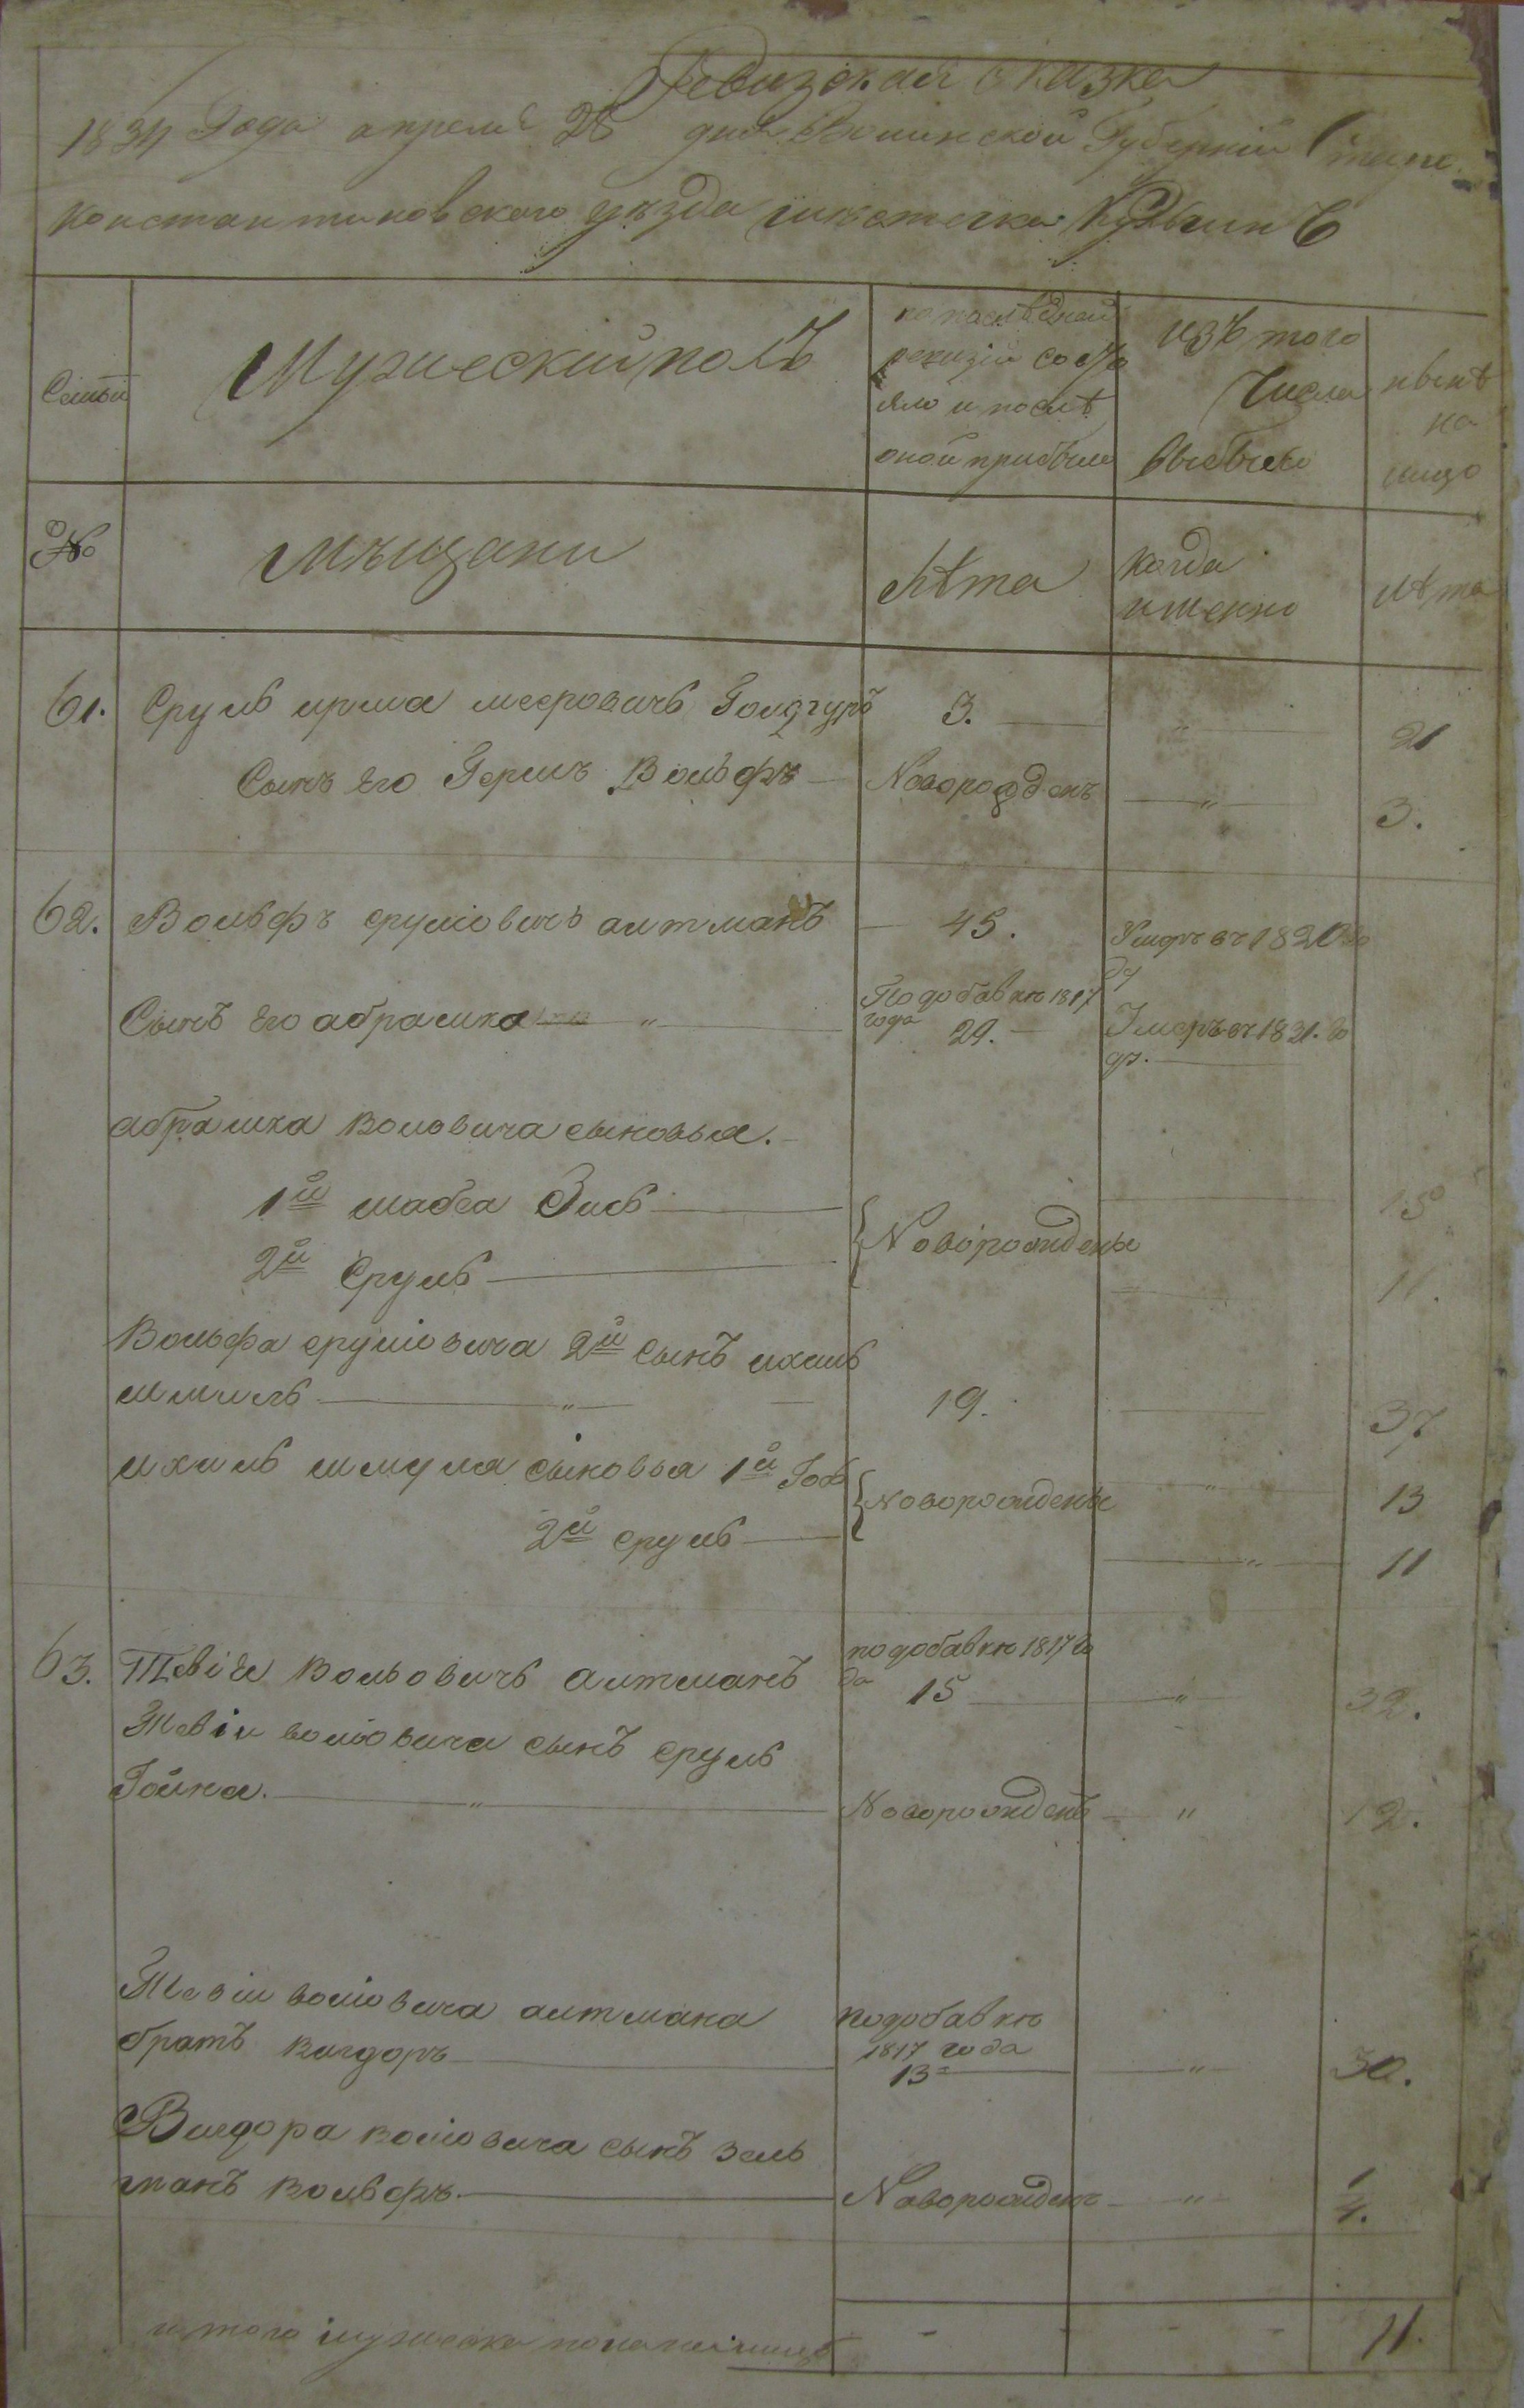 Ревизская сказка
1834 Года апреля 28 дня Волинской Губерніи Старо
константиновского уѣзда мѣстечка Кульчинъ
Семьи
Мужеский полъ
по последней
ревизіи состо
яло и послѣ
оной прибыло
изъ того
Числа
выбыло
нынѣ
на
лицо
№
Мѣщани
Лѣта
когда
именно
лѣта
61. Сруль мееровичь 3. — „ 21
Сынъ Его Гершъ Вольфъ — Новорожденъ — „ 3.
62. Вольфъ срулiовичь алтманъ — 45. Умеръ въ 1820 го
ду
Сынъ Его абрамко — „ — По добавкѣ 1817
года 29. — Умеръ въ 1831. го
ду. —
абрамка волiовича сыновья. —
1й шабса Зись — Новорождены 15
2й Сруль — 11.
Вольфа срулiовича 2й сынъ ихиль
шмиль — „ — 19. — 37
ихиль шмуля сыновья 1й Новорождены „ 13
2й сруль — „ 11
63. Тевiе Вольовичь алтманъ по добавкѣ 1817 го
да 15 — „ 32.
Тевiи волiовича сынъ сруль
Гойна. — „ — Новорожденъ — „ 12.
Тевiи волiовича алтмана по добавкѣ
братъ вигдоръ — 1817 года
13 — „ — 30.
Вигдора волiовича сынъ зель
манъ вольфъ. — Новорожденъ — „ — 1/4.
итого мужеска пола налицо - - - 11.